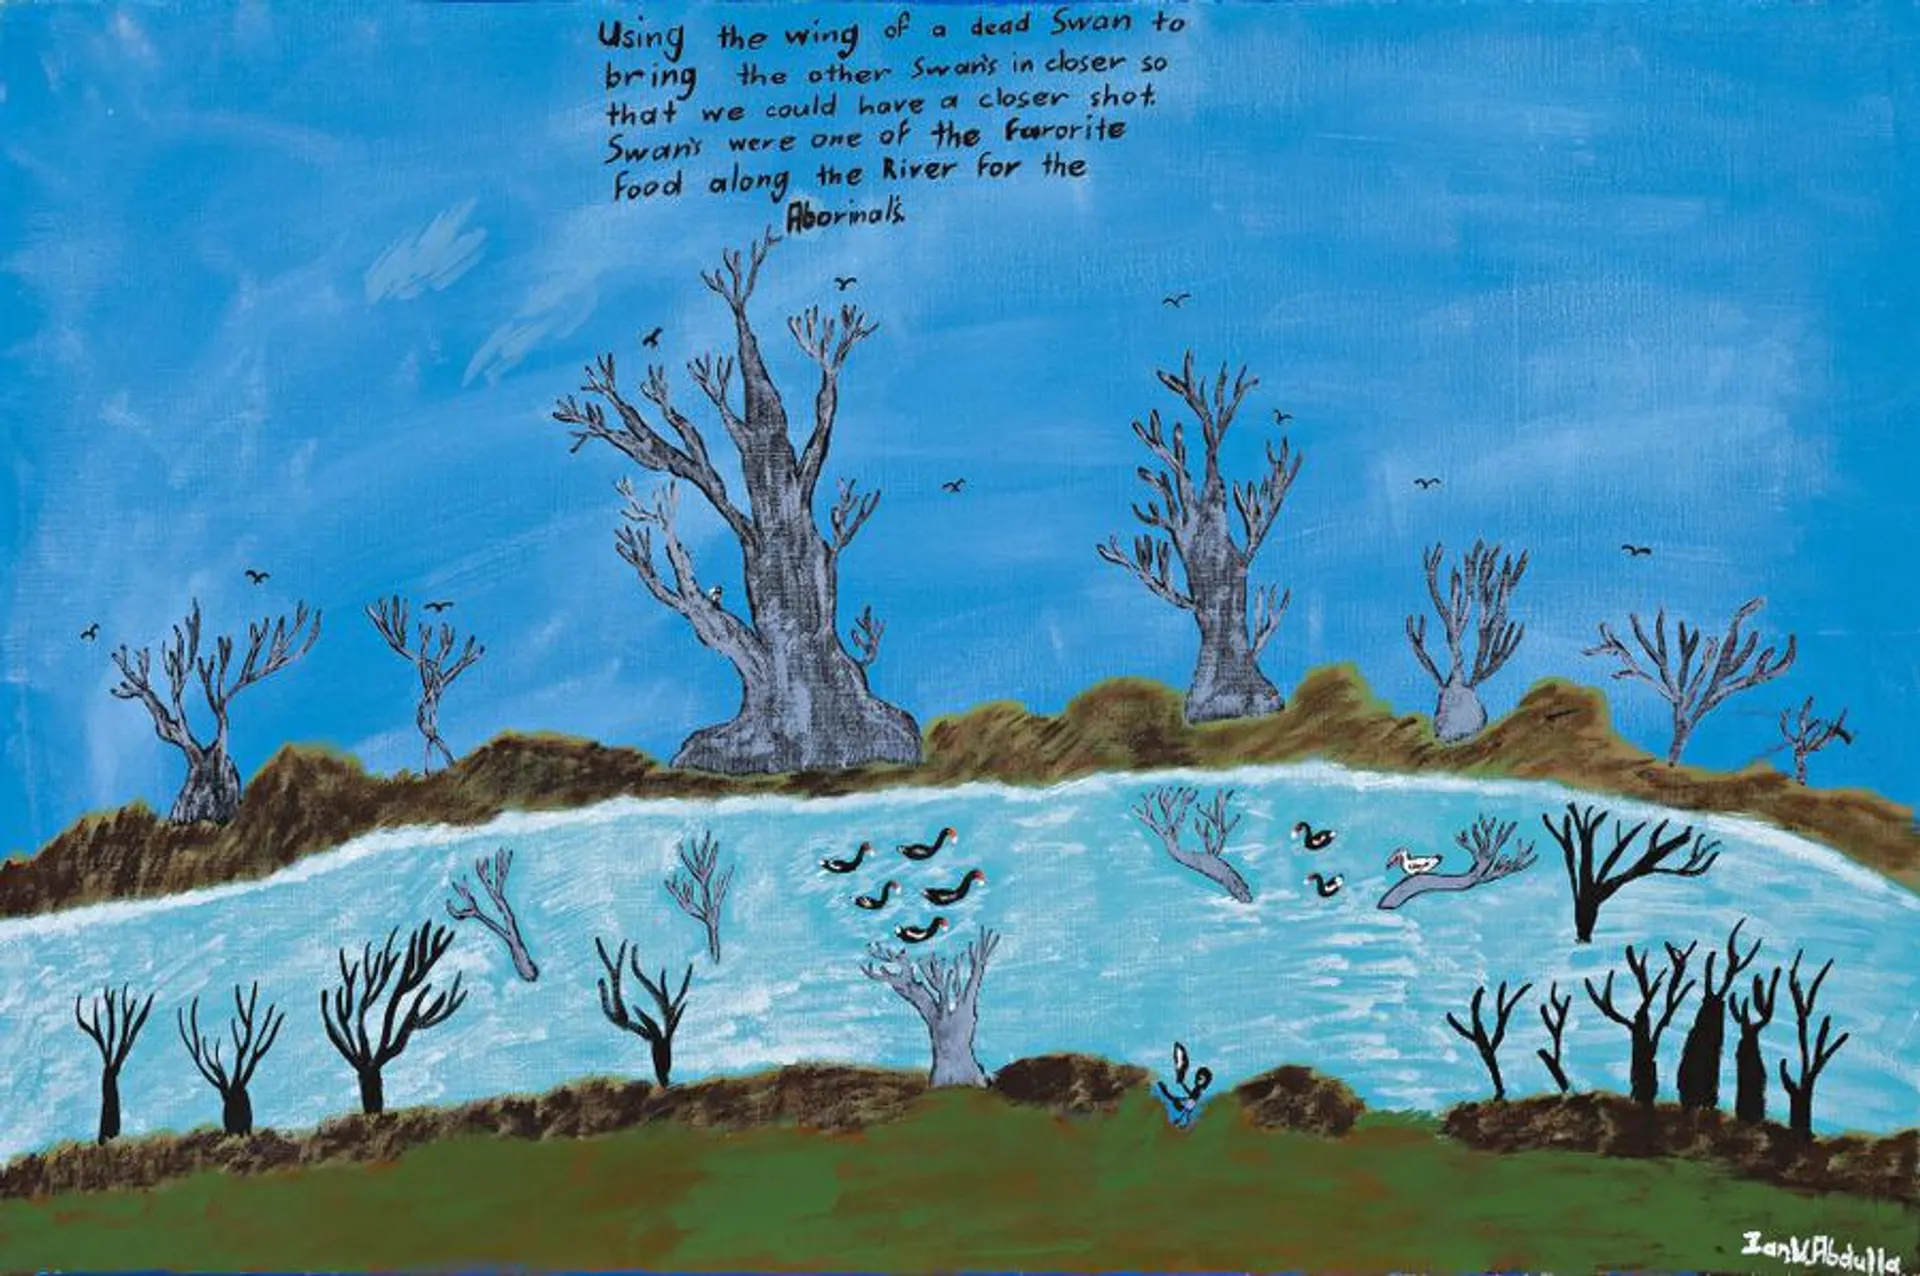 Using the wing of a dead Swan to
bring the other Swan's in closer so
that we could have a closer shot.
Swan's were one of the Favorite
Food along the River for the
Aborinal's.
Ian W Abdulla